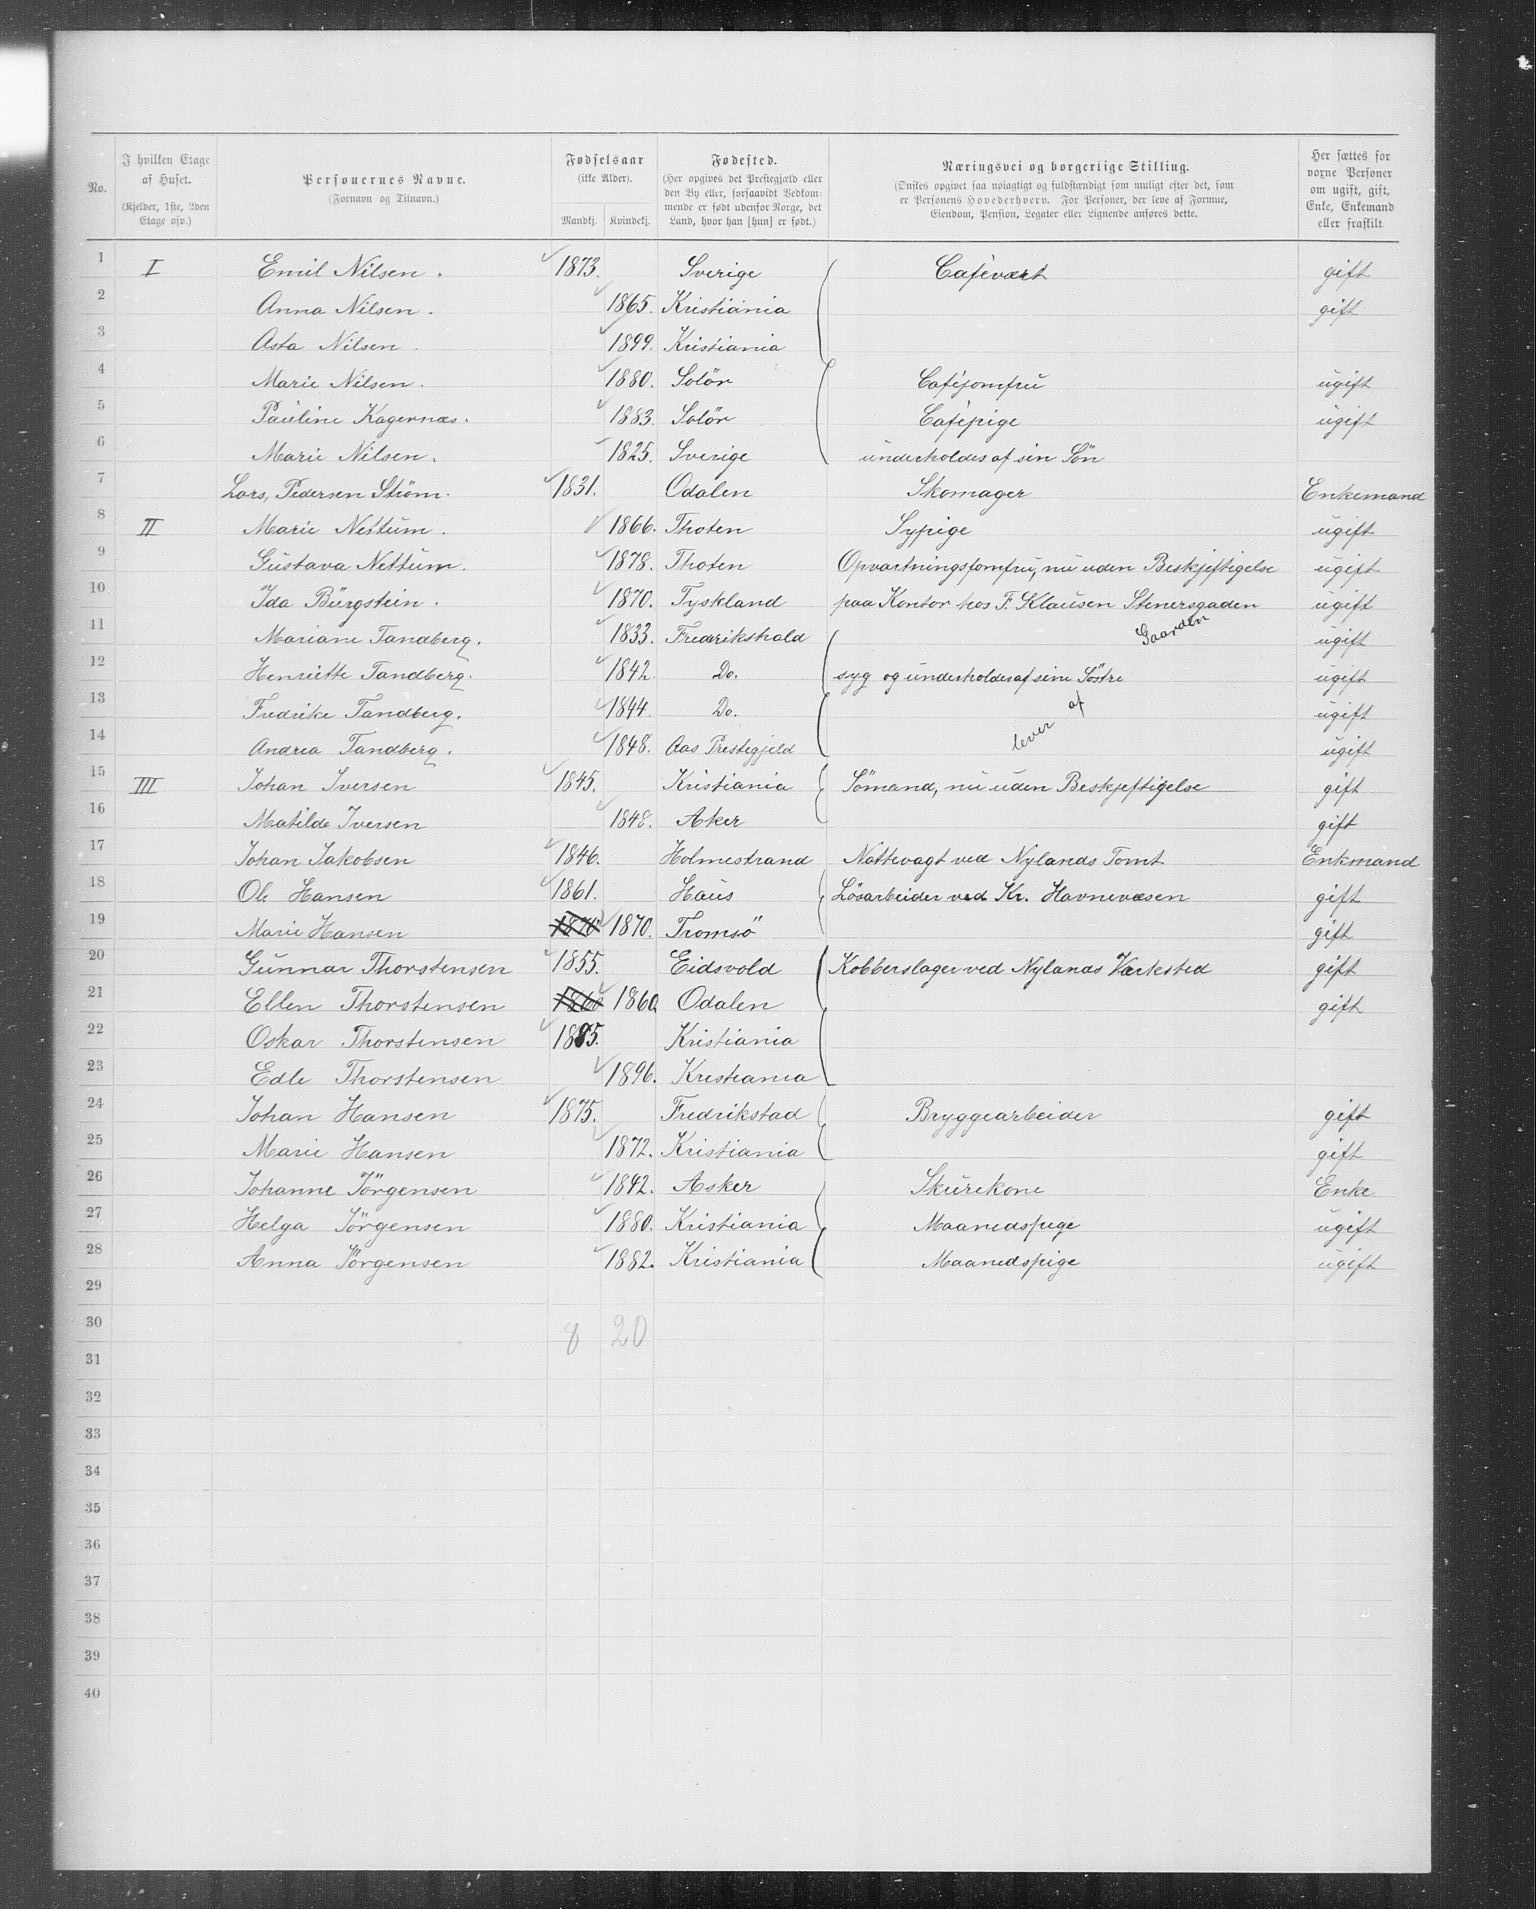 No. | I hvilken Etage af Huset. (Kjelder, 1ste, 2den Etage osv.) | Personernes Navne. (Fornavn og Tilnavn.) | Fødselsaar (ikke Alder). Mandkj. | Kvindekj. | Fødested. (Her opgives det Præstegjæld eller den By eller, forsaavidt Vedkommende er født udenfor Norge, det Land, hvor han [hun] er født.) | Næringsvei og borgerlige Stilling. (Ønskes opgivet saa nøiagtigt og fuldstændigt som muligt efter det, som er Personens Hovederhverv. For Personer, der leve af Formue, Eiendom, Pension, Legater eller Lignende anføres dette. | Her sættes for voxne Personer om ugift, gift, Enke, Enkemand eller fraskilt
1 I Emil Nilsen. 1873. Sverige Cafévært gift
2 Anna Nilsen. 1865. Kristiania gift
3 Asta Nilsen. 1899. Kristiania
4 Marie Nilsen. 1880. Solör Caféjomfru ugift
5 Pauline Kagernæs. 1883. Solör Cafépige ugift
6 Marie Nilsen. 1825. Sverige underholdes af sin Sön
7 Lars, Pedersen Ström. 1831. Odalen Skomager Enkemand
8 II Marie Nettum. 1866. Thoten Sypige ugift
9 Gustava Nettum. 1878. Thoten Opvartningsjomfru, nu uden Beskjeftigelse ugift
10 Ida Bürgstein. 1870. Tyskland paa Kontor hos F. Klausen Stenersgaden ugift
11 Mariane Tandberg. 1833. Fredrikshald Gaarden ugift
12 Henriette Tandberg. 1842. Do. syg og underholdes af sine Söstre ugift
13 Fredrike Tandberg. 1844. Do. af ugift
14 Andrea Tandberg. 1848. Aas Prestegjeld lever ugift
15 III Johan Iversen 1845. Kristiania Sömand, nu uden Beskjeftigelse gift
16 Matilde Iversen 1848. Aker gift
17 Johan Jakobsen 1846. Holmestrand Nattevagt ved Nylands Tomt Enkmand
18 Ole Hansen 1861. Haus Lösarbeider ved Kr. Havnevæsen gift
19 Marie Hansen 1870 1870. Tromsö gift
20 Gunnar Thorstensen 1855. Eidsvold Kobberslager ved Nylands Værksted gift
21 Ellen Thorstensen 1860 1860. Odalen gift
22 Oskar Thorstensen 1885. Kristiania
23 Edle Thorstensen 1896. Kristiania
24 Johan Hansen 1875. Fredrikstad Bryggearbeider gift
25 Marie Hansen 1872. Kristiania gift
26 Johanne Jörgensen 1842. Asker Skurekone Enke
27 Helga Jörgensen 1880. Kristiania Maanedspige ugift
28 Anna Jörgensen 1882. Kristiania Maanedspige ugift
29
30 8 20
31
32
33
34
35
36
37
38
39
40